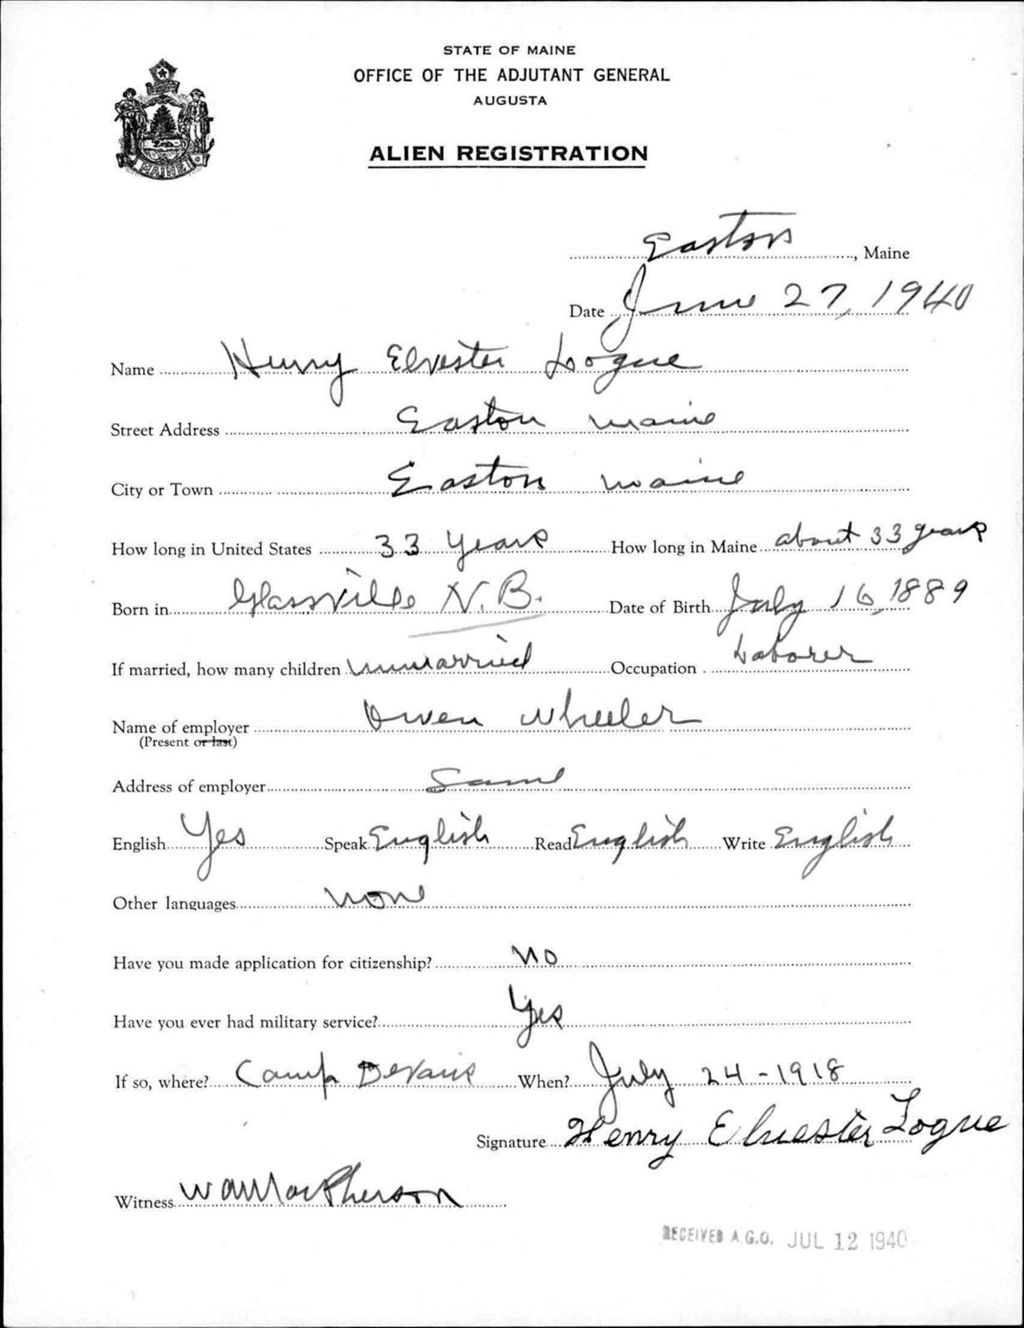 STATE OF MAINE
OFFICE OF THE ADJUTANT GENERAL
AUGUSTA
ALIEN REGISTRATION
MAINE
Easton, Maine
Date June 27, 1940
Name Henry Elvester Logue
Street Address Easton Maine
City or Town Easton Maine
How long in United States 33 years How long in Maine about 33 years
Born in Glassville N.B. Date of Birth July 16, 1889
If married, how many children Unmarried Occupation Laborer
Name of employer Owen Wheeler
(Present or last)
Address of employer Same
English Yes Speak English Read English Write English
Other languages None
Have you made application for citizenship? No
Have you ever had military service? Yes
If so, where? Camp Devans When? July 24-1918
Signature Henry Elvester Logue
Witness W A MacPherson
RECEIVED A.G.O. JUL 12 1940